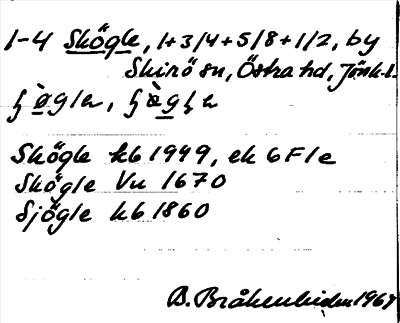 1-4 Skögle, 1+3/4+5/8+1/2, by
Skirö sn, Östra hd, Jönk. l.
Skögle kb 1949, ek 6F1e
Skögle Vu 1670
Sjögle kb 1860
B. Bråkenhielm 1967